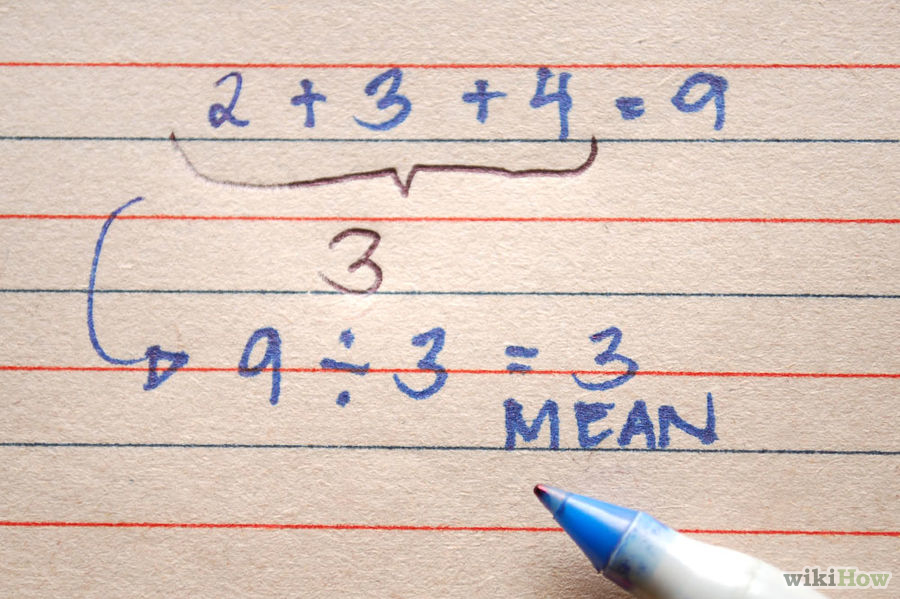 2 + 3 + 4 = 9
3
9 ÷ 3 = 3
MEAN
wikiHow